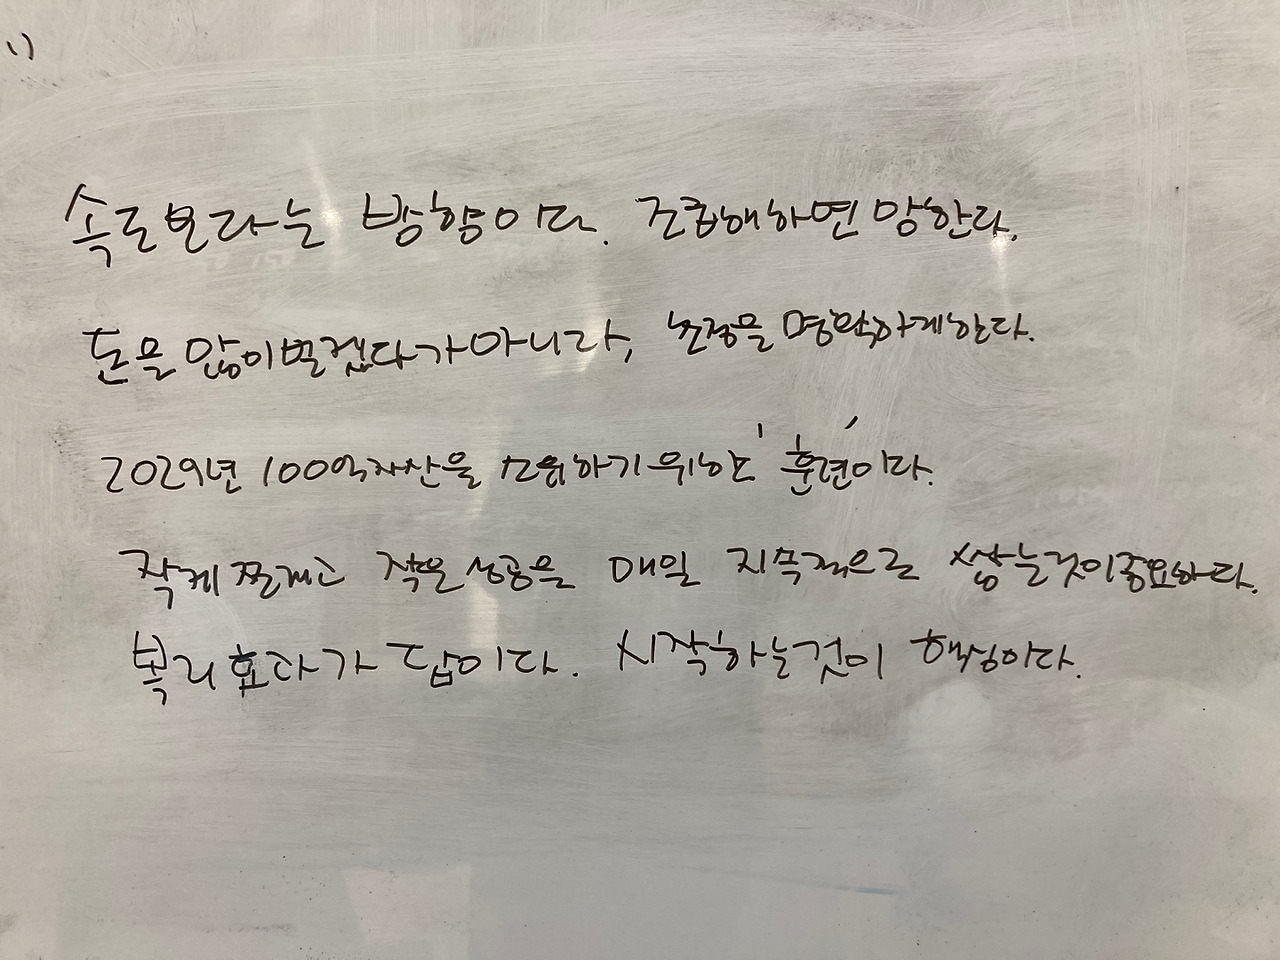 속도보다는 방향이다. 조급해하면 망한다.
돈을 많이벌겠다가아니라, 논점을 명확하게한다.
2029년 100억자산을 소유하기위한 '훈련'이다.
작게 쪼개고 작은 성공을 매일 지속적으로 쌓는것이중요하다.
복리효과가 답이다. 시작하는것이 핵심이다.